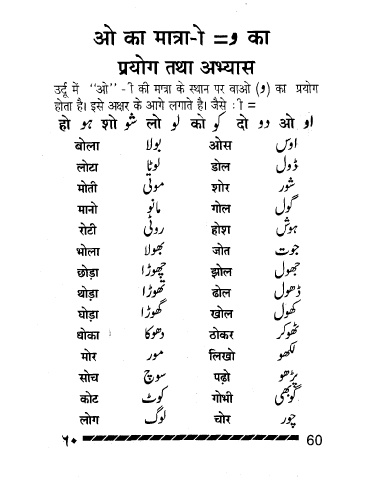 ओ का मात्रा-ो =و का
प्रयोग तथा अभ्यास
उर्दू में "ओ" -ी की मत्रा के स्थान पर वाओ (و) का प्रयोग
होता है। इसे अक्षर के आगे लगाते है। जैसे ःी =
हो ہو शो شو लो لو को کو दो دو ओ او
बोला بولا ओस اوس
लोटा لوٹا डोल ڈول
मोती موتی शोर شور
मानो مانو गोल گول
रोटी روٹی होश ہوش
भोला بھولا जोत جوت
छोड़ा چھوڑا झोल جھول
थोड़ा تھوڑا ढोल ڈھول
घोड़ा گھوڑا खोल کھول
धोका دھوکا ठोकर ٹھوکر
मोर مور लिखो لکھو
सोच سوچ पढ़ो پڑھو
कोट کوٹ गोभी گوبھی
लोग لوگ चोर چور
۶۰ 60